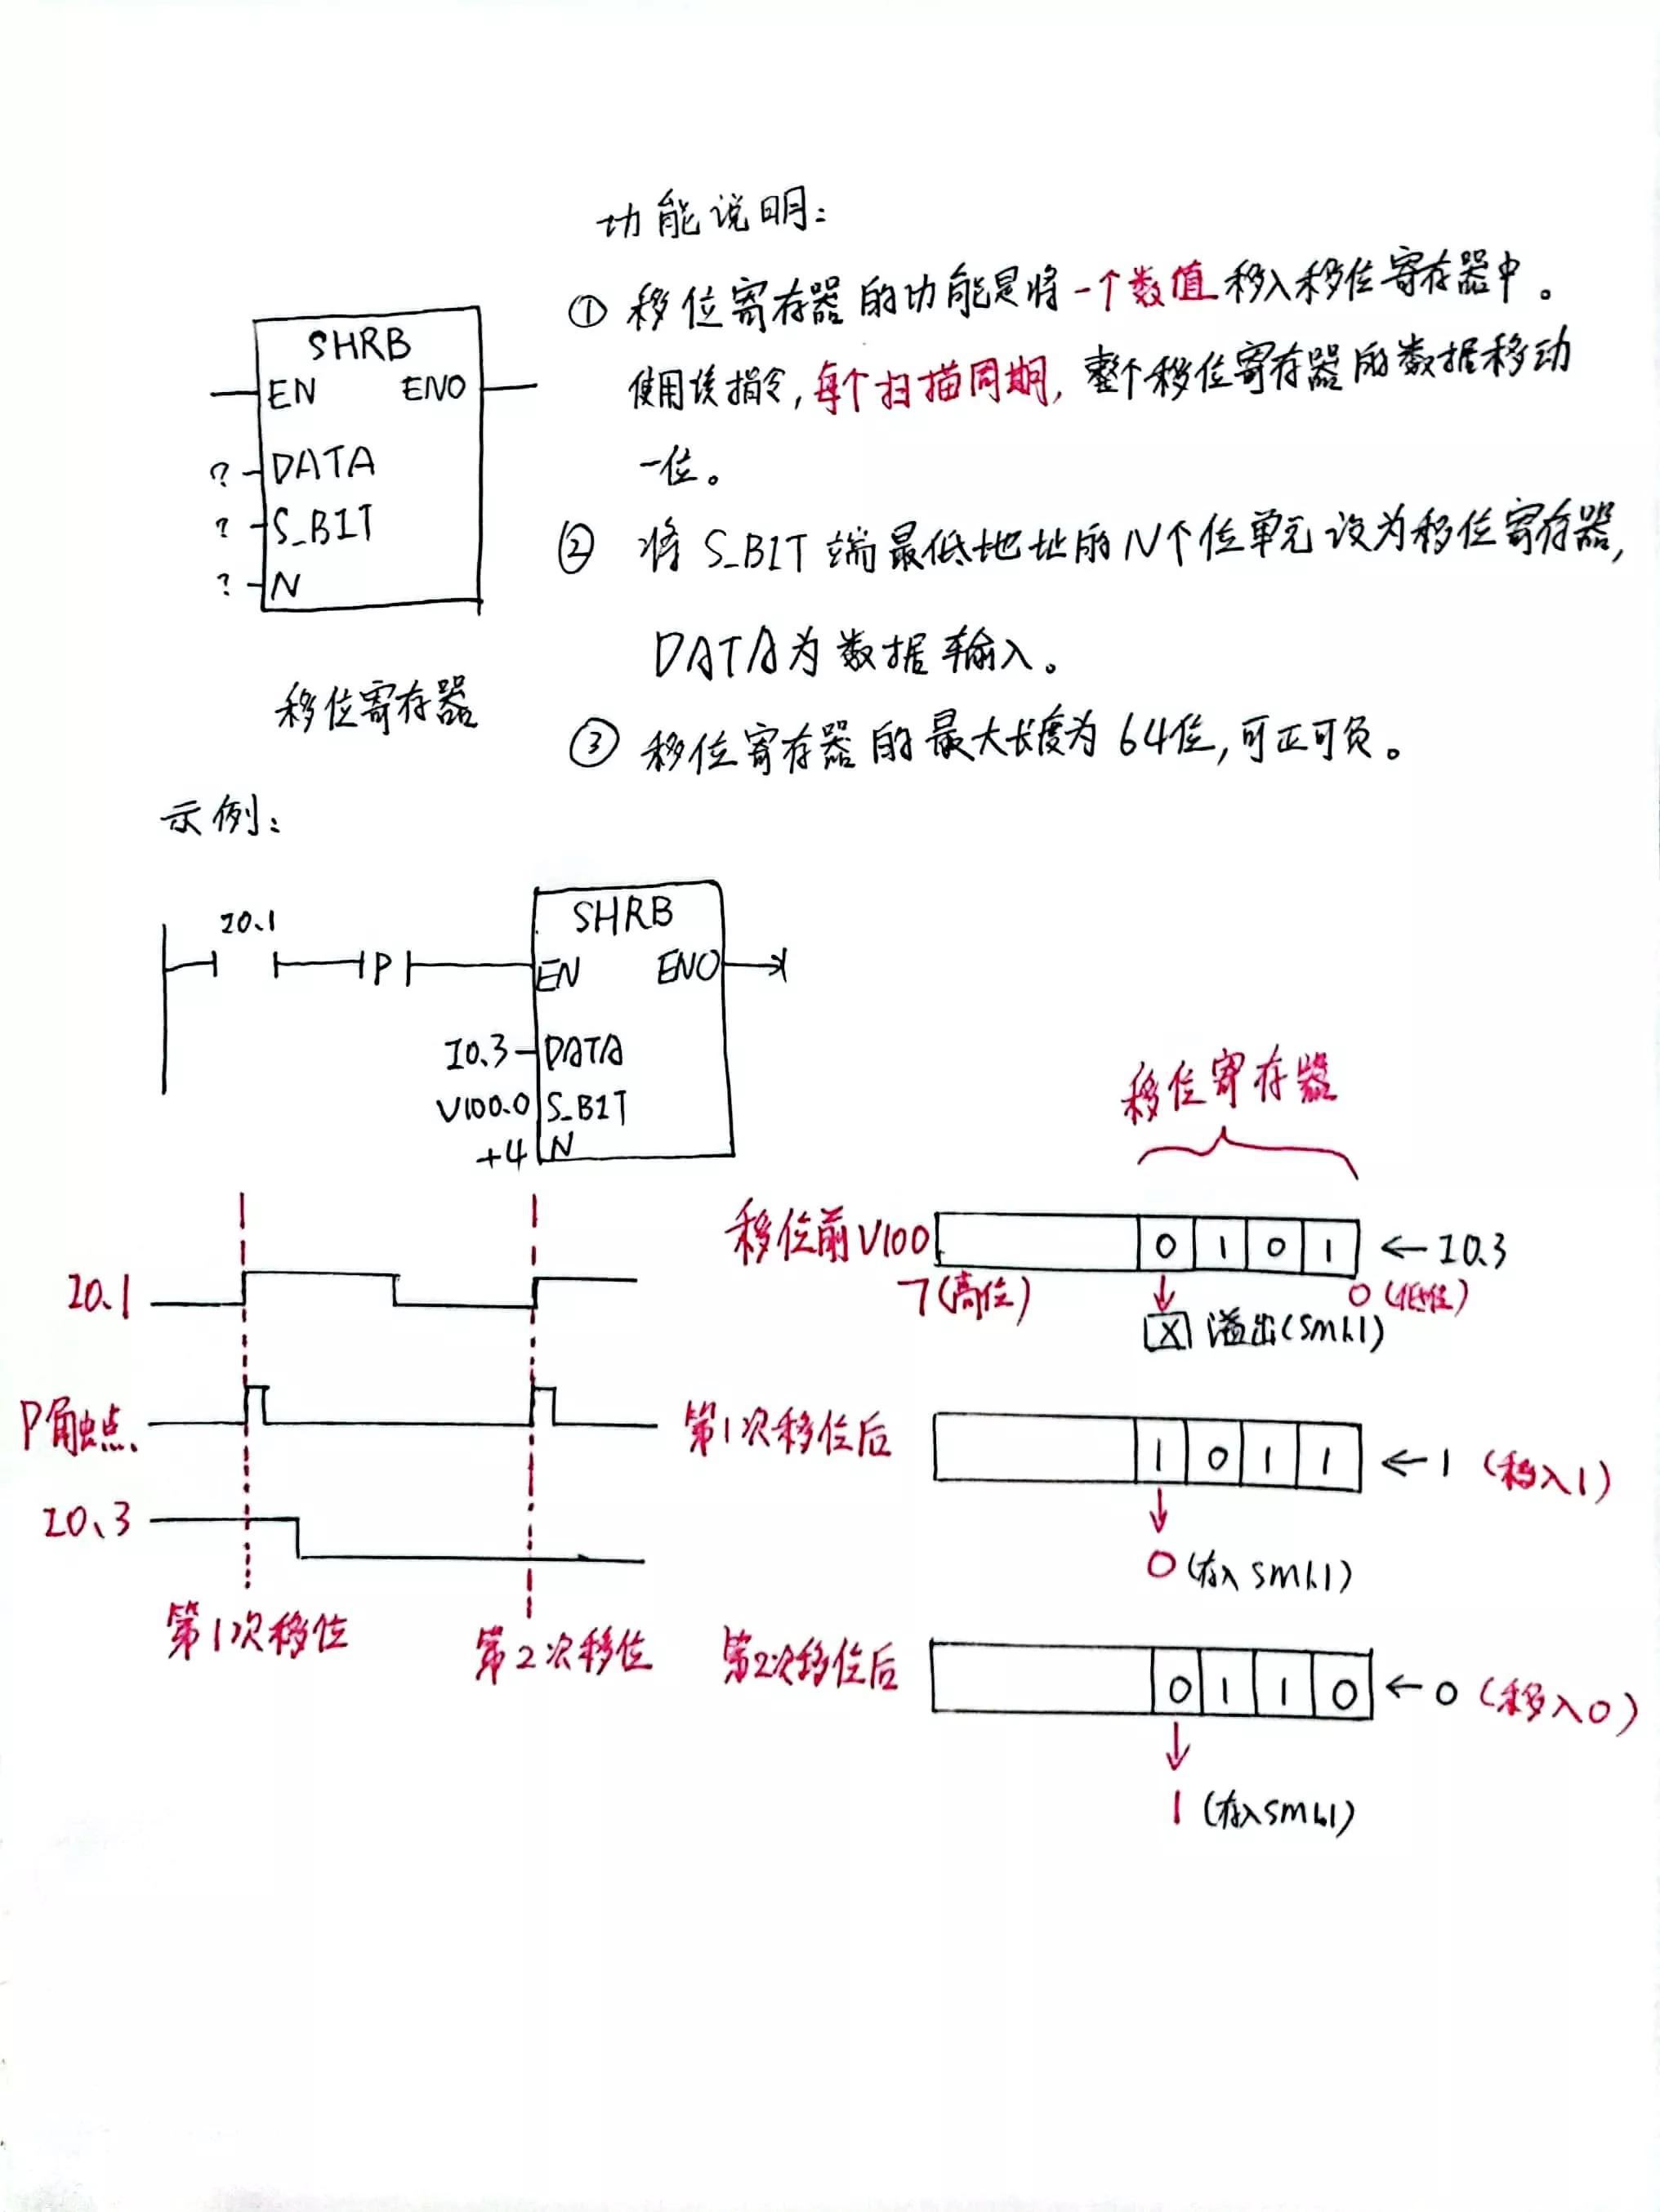 功能说明:
① 移位寄存器的功能是将一个数值移入移位寄存器中。
使用该指令,每个扫描周期,整个移位寄存器的数据移动
一位。
② 将S_BIT端最低地址的N个位单元设为移位寄存器,
DATA为数据输入。
③ 移位寄存器的最大长度为64位,可正可负。
SHRB
EN ENO
? DATA
? S_BIT
? N
移位寄存器
示例:
I0.1
P
SHRB
EN ENO
I0.3 DATA
V100.0 S_BIT
+4 N
I0.1
P触点
I0.3
第1次移位 第2次移位
移位寄存器
移位前V100 0 1 0 1 ←I0.3
7(高位) 0(低位)
X 溢出(SM1.1)
第1次移位后 1 0 1 1 ←1 (移入1)
0(存入SM1.1)
第2次移位后 0 1 1 0 ←0 (移入0)
1(存入SM1.1)